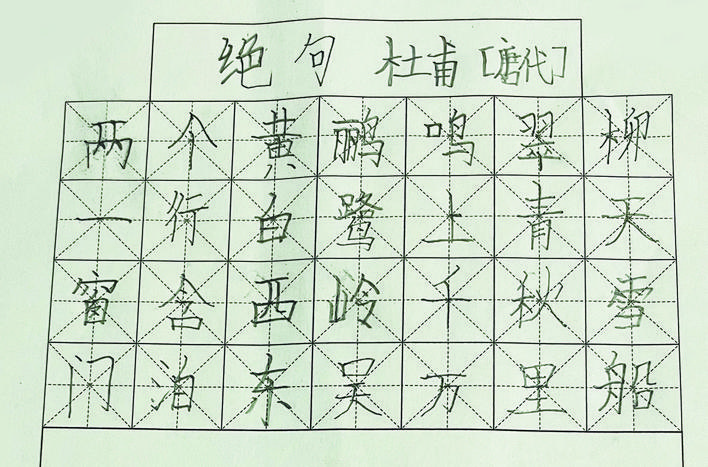 绝句 杜甫[唐代]
两个黄鹂鸣翠柳
一行白鹭上青天
窗含西岭千秋雪
门泊东吴万里船